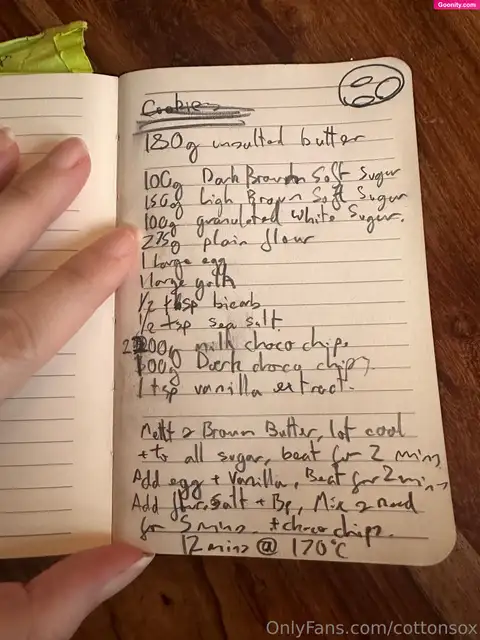 Goonity.com
Cookies
180g unsalted butter
100g Dark Brown Soft Sugar
150g Ligh Brown Soft Sugar
100g granulated white Sugar.
275g plain flour
1 large egg
1 large yolk
1/2 tsp bicarb
1/2 tsp sea salt
200g milk choco chips
100g Dark choco chips
1 tsp vanilla extract.
Melt & Brown Butter, let cool
+ to all sugar, beat for 2 mins
Add egg + Vanilla, Beat for 2 mins
Add flour, Salt + Bp, Mix & need
for 5 mins. + choco chips.
12 mins @ 170°C
OnlyFans.com/cottonsox